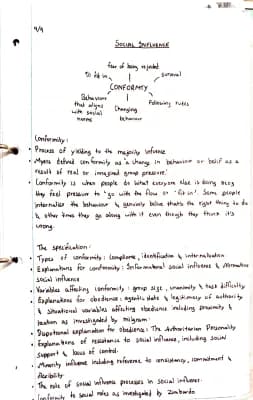 9/9
SOCIAL INFLUENCE
fear of being rejected
To fit in
survival
CONFORMITY
Behaviour that aligns with social norms
Changing behaviour
Following rules
Conformity:
• Process of yielding to the majority influence
• Myers defined conformity as 'a change in behaviour or belief as a
result of real or imagined group pressure'
• Conformity is when people do what everyone else is doing bcos
they feel pressure to 'go with the flow' or 'fit in'. Some people
internalise the behaviour & genuinely believe that's the right thing to do
& other times they go along with it even though they think it's
wrong.
The specification:
• Types of conformity: compliance, identification & internalisation
• Explanations for conformity: Informational social influence & Normative
social influence
• Variables affecting conformity: group size, unanimity & task difficulty
• Explanations for obedience: agentic state & legitimacy of authority
& situational variables affecting obedience including proximity &
location as investigated by Milgram.
• Dispositional explanation for obedience: The Authoritarian Personality
• Explanations of resistance to social influence, including social
support & locus of control.
• Minority influence including reference to consistency, commitment &
flexibility.
• The role of social influence processes in social influence.
• Conformity to social roles as investigated by Zimbardo